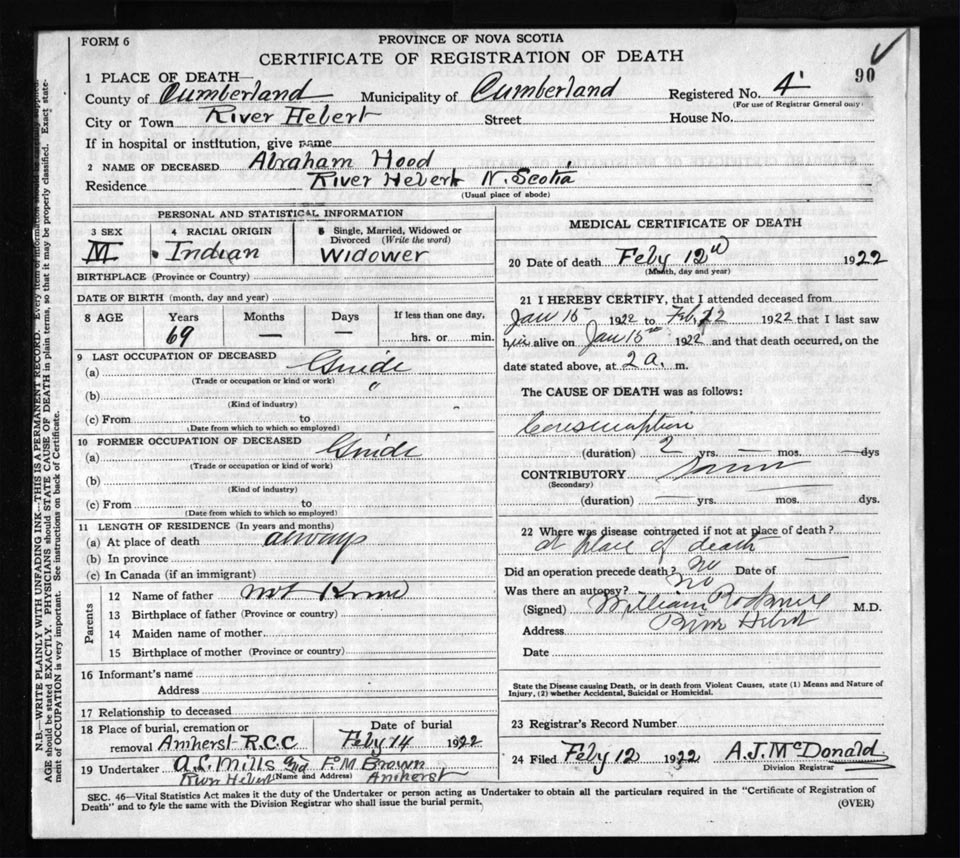 FORM 6
PROVINCE OF NOVA SCOTIA
CERTIFICATE OF REGISTRATION OF DEATH
90
1 PLACE OF DEATH—
County of Cumberland Municipality of Cumberland Registered No. 4
(For use of Registrar General only)
City or Town River Hebert Street House No.
If in hospital or institution, give name
2 NAME OF DECEASED Abraham Hood
Residence River Hebert N. Scotia
(Usual place of abode)
PERSONAL AND STATISTICAL INFORMATION
3 SEX 4 RACIAL ORIGIN 5 Single, Married, Widowed or Divorced (Write the word)
M Indian Widower
BIRTHPLACE (Province or Country)
DATE OF BIRTH (month, day and year)
8 AGE Years Months Days If less than one day,
69 — — hrs. or min.
9 LAST OCCUPATION OF DECEASED
(a) Guide
(Trade or occupation or kind or work)
(b) "
(Kind of industry)
(c) From to
(Date from which to which so employed)
10 FORMER OCCUPATION OF DECEASED
(a) Guide
(Trade or occupation or kind of work)
(b)
(Kind of industry)
(c) From to
(Date from which to which so employed)
11 LENGTH OF RESIDENCE (In years and months)
(a) At place of death always
(b) In province
(c) In Canada (if an immigrant)
Parents
12 Name of father not Known
13 Birthplace of father (Province or country)
14 Maiden name of mother
15 Birthplace of mother (Province or country)
16 Informant's name
Address
17 Relationship to deceased
18 Place of burial, cremation or removal Amherst R.C.C Date of burial Feby 14 1922
19 Undertaker A.L. Mills and F.M. Brown
River Hebert (Name and Address) Amherst
MEDICAL CERTIFICATE OF DEATH
20 Date of death Feby 12th 1922
(Month, day and year)
21 I HEREBY CERTIFY, that I attended deceased from
Jan 15 1922 to Feb, 12 1922 that I last saw
him alive on Jan 15 1922 and that death occurred, on the
date stated above, at 2 a. m.
The CAUSE OF DEATH was as follows:
Consumption
(duration) 2 yrs. — mos. — dys
CONTRIBUTORY
(Secondary)
(duration) — yrs. — mos. dys.
22 Where was disease contracted if not at place of death?
at place of death
Did an operation precede death? no Date of —
Was there an autopsy? no
(Signed) William M.D.
Address River Hebert
Date
State the Disease causing Death, or in death from Violent Causes, state (1) Means and Nature of
Injury, (2) whether Accidental, Suicidal or Homicidal.
23 Registrar's Record Number
24 Filed Feby 12 1922 A.J. McDonald
Division Registrar
SEC. 46—Vital Statistics Act makes it the duty of the Undertaker or person acting as Undertaker to obtain all the particulars required in the "Certificate of Registration of
Death" and to fyle the same with the Division Registrar who shall issue the burial permit.
(OVER)
N.B.—WRITE PLAINLY WITH UNFADING INK—THIS IS A PERMANENT RECORD. Every item of information should be
AGE should be stated EXACTLY. PHYSICIANS should STATE CAUSE OF DEATH in plain terms, so that it may be properly classified. Exact state-
ment of OCCUPATION is very important. See instructions on back of Certificate.